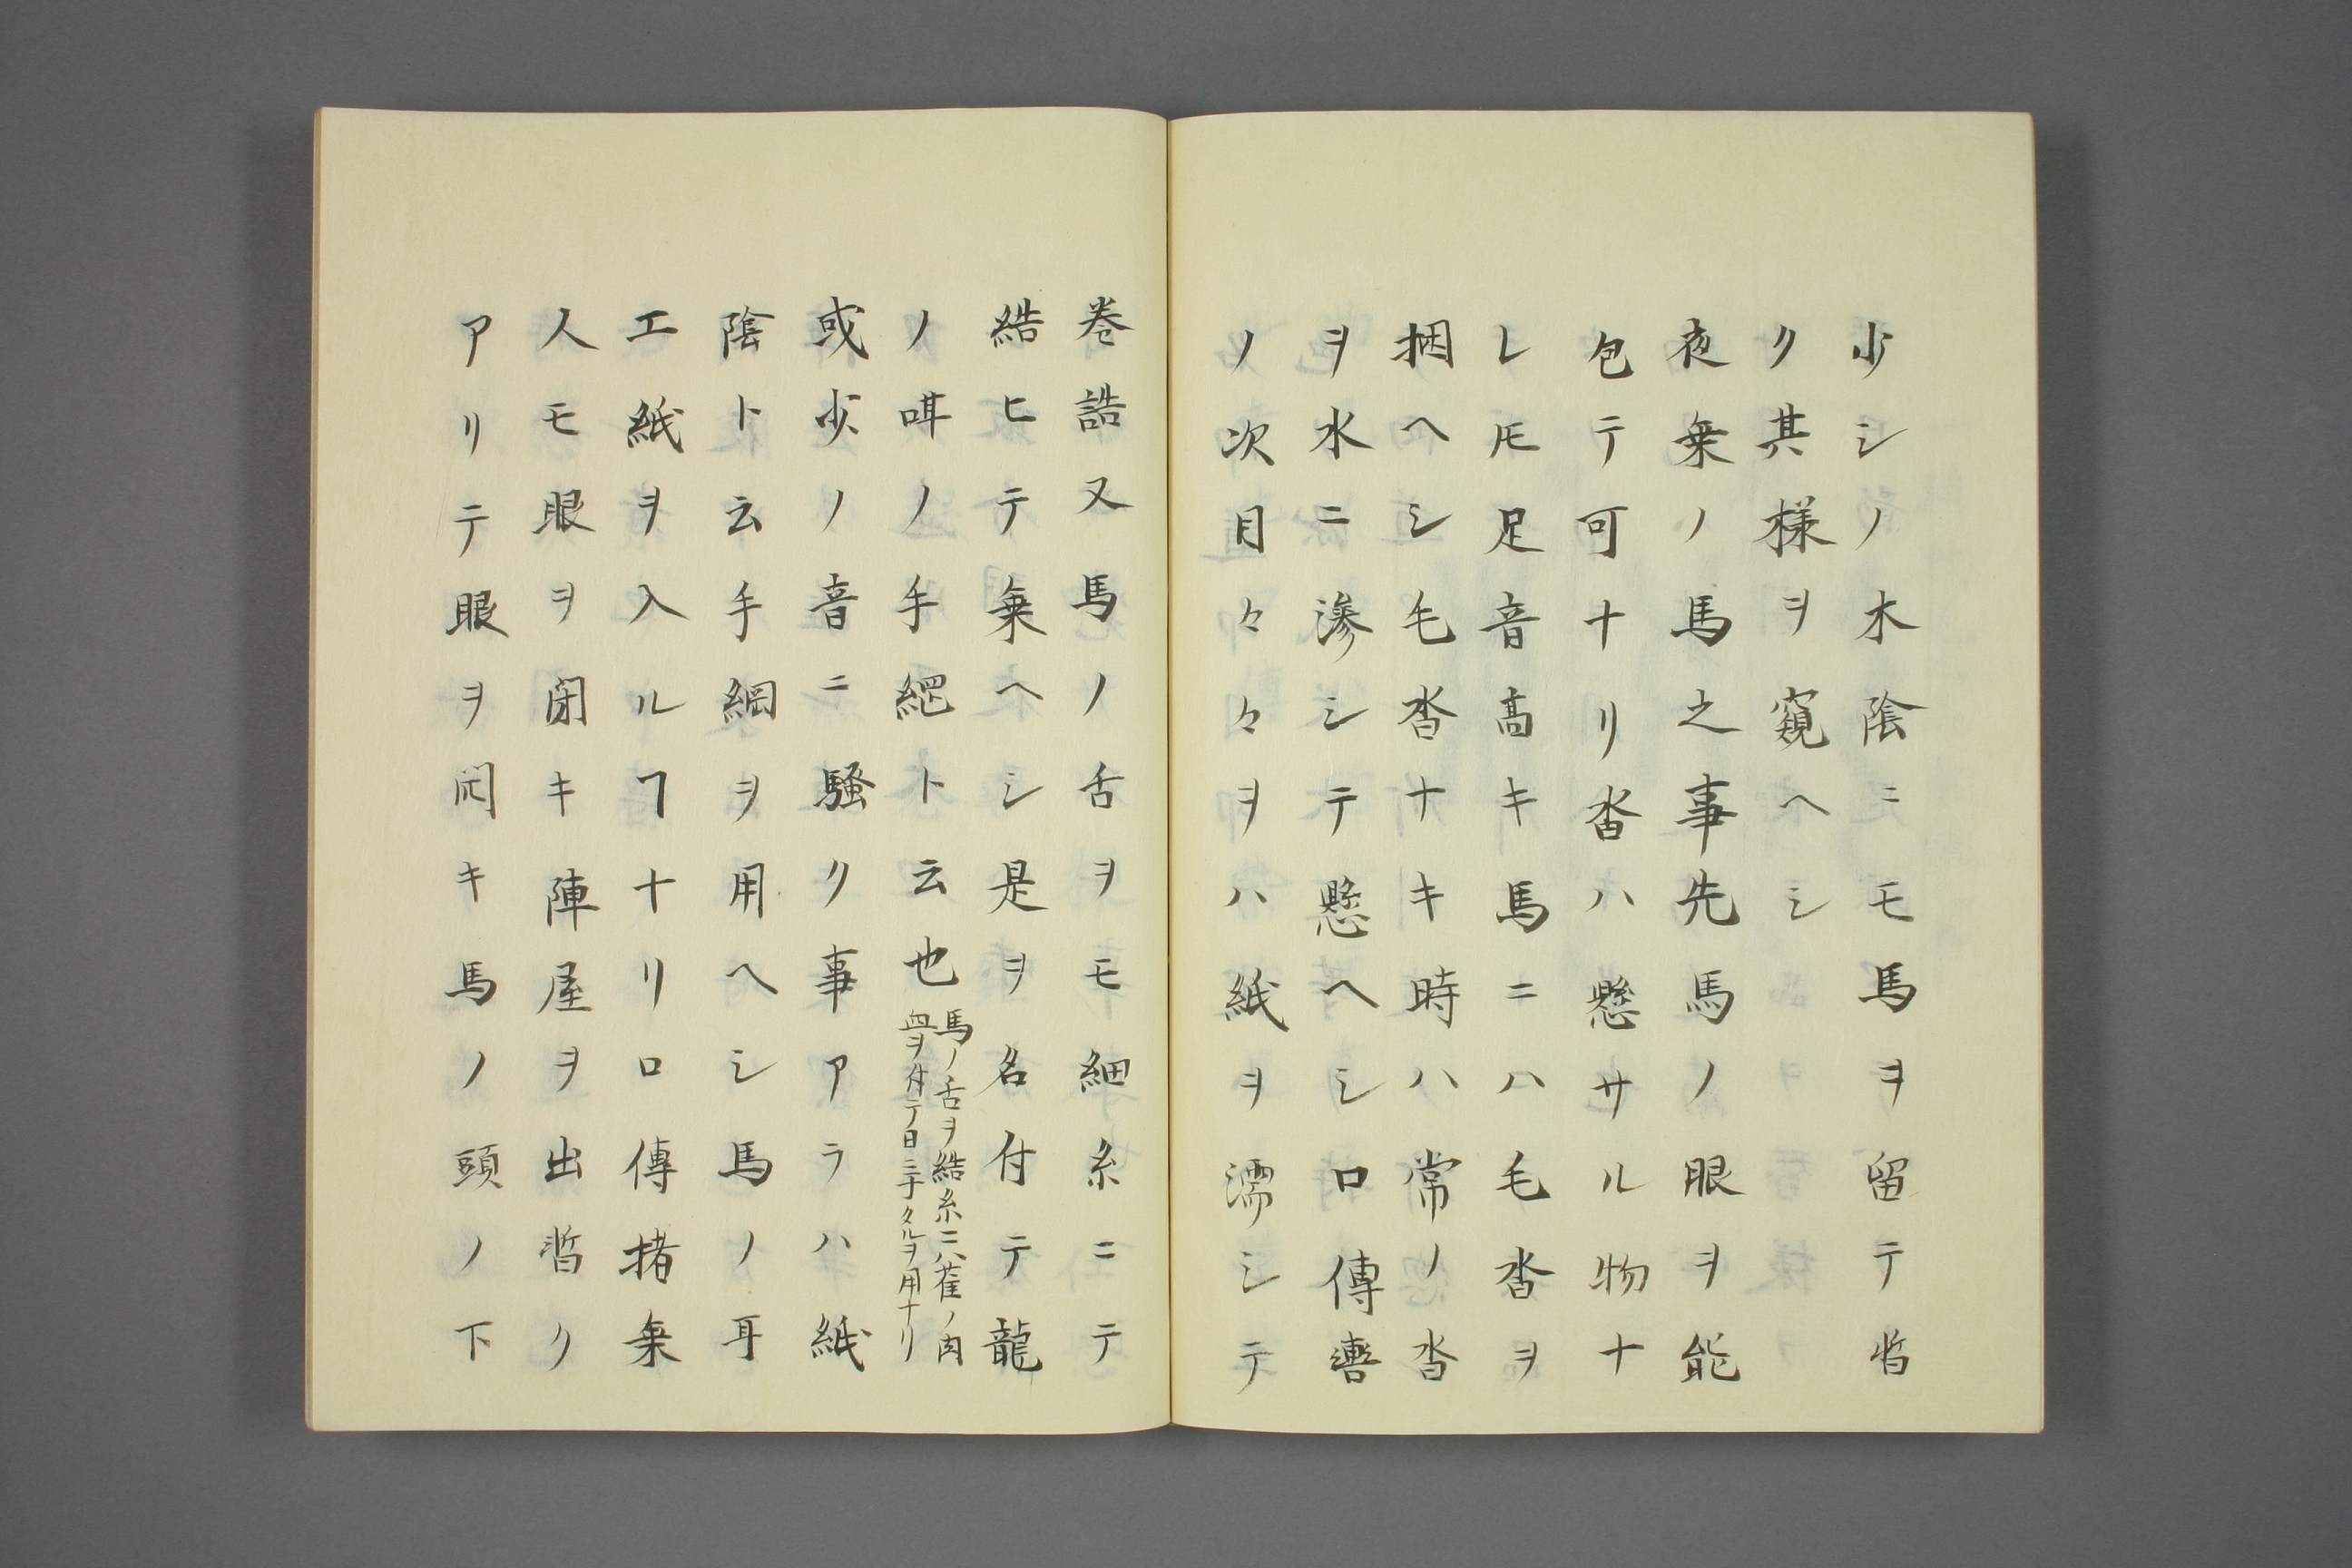 少シノ木陰ニモ馬ヲ留テ暫
ク其様ヲ窺ヘシ
夜乗ノ馬之事先馬ノ眼ヲ能
包テ可ナリ沓ハ懸サル物ナ
レ𪜈足音高キ馬ニハ毛沓ヲ
捆ヘシ毛沓ナキ時ハ常ノ沓
ヲ水ニ滲シテ懸ヘシ口傳轡
ノ次目々々ヲハ紙ヲ濡シテ
巻誥又馬ノ舌ヲモ細糸ニテ
結ヒテ乗ヘシ是ヲ名付テ龍
ノ咡ノ手縄ト云也
馬ノ舌ヲ結糸ニハ雀ノ肉
血ヲ付テ日ニ干タルヲ用ナリ
或少ノ音ニ騒ク事アラハ紙
陰ト云手綱ヲ用ヘシ馬ノ耳
エ紙ヲ入ルヿナリ口傳捨乗
人モ眼ヲ閉キ陣屋ヲ出暫ク
アリテ眼ヲ開キ馬ノ頭ノ下